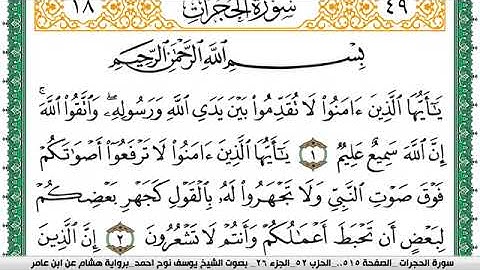 ١٨ سُورَةُ الحُجُرَاتِ ٤٩
بِسْمِ اللَّهِ الرَّحْمَٰنِ الرَّحِيمِ
يَٰٓأَيُّهَا الَّذِينَ ءَامَنُوا۟ لَا تُقَدِّمُوا۟ بَيْنَ يَدَيِ اللَّهِ وَرَسُولِهِۦ ۖ وَاتَّقُوا۟ اللَّهَ ۚ
إِنَّ اللَّهَ سَمِيعٌ عَلِيمٌ ١ يَٰٓأَيُّهَا الَّذِينَ ءَامَنُوا۟ لَا تَرْفَعُوٓا۟ أَصْوَٰتَكُمْ
فَوْقَ صَوْتِ النَّبِيِّ وَلَا تَجْهَرُوا۟ لَهُۥ بِالْقَوْلِ كَجَهْرِ بَعْضِكُمْ
لِبَعْضٍ أَن تَحْبَطَ أَعْمَٰلُكُمْ وَأَنتُمْ لَا تَشْعُرُونَ ٢ إِنَّ الَّذِينَ
سورة الحجرات _الصفحة ٥١٥_ _الحزب ٥٢_الجزء ٢٦_ بصوت الشيخ يوسف نوح احمد_برواية هشام عن ابن عامر